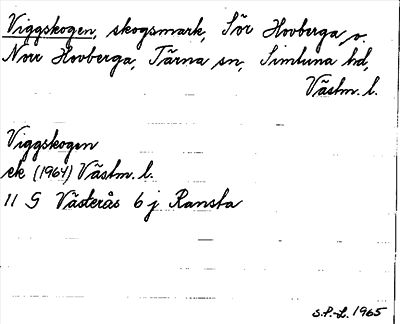 Viggskogen, skogsmark, Sör Hovberga o.
Norr Hovberga, Tärna sn, Simtuna hd,
Västm. l.
Viggskogen
ek (1964) Västm. l.
11 G Västerås 6 j Ransta
S.P.-L. 1965